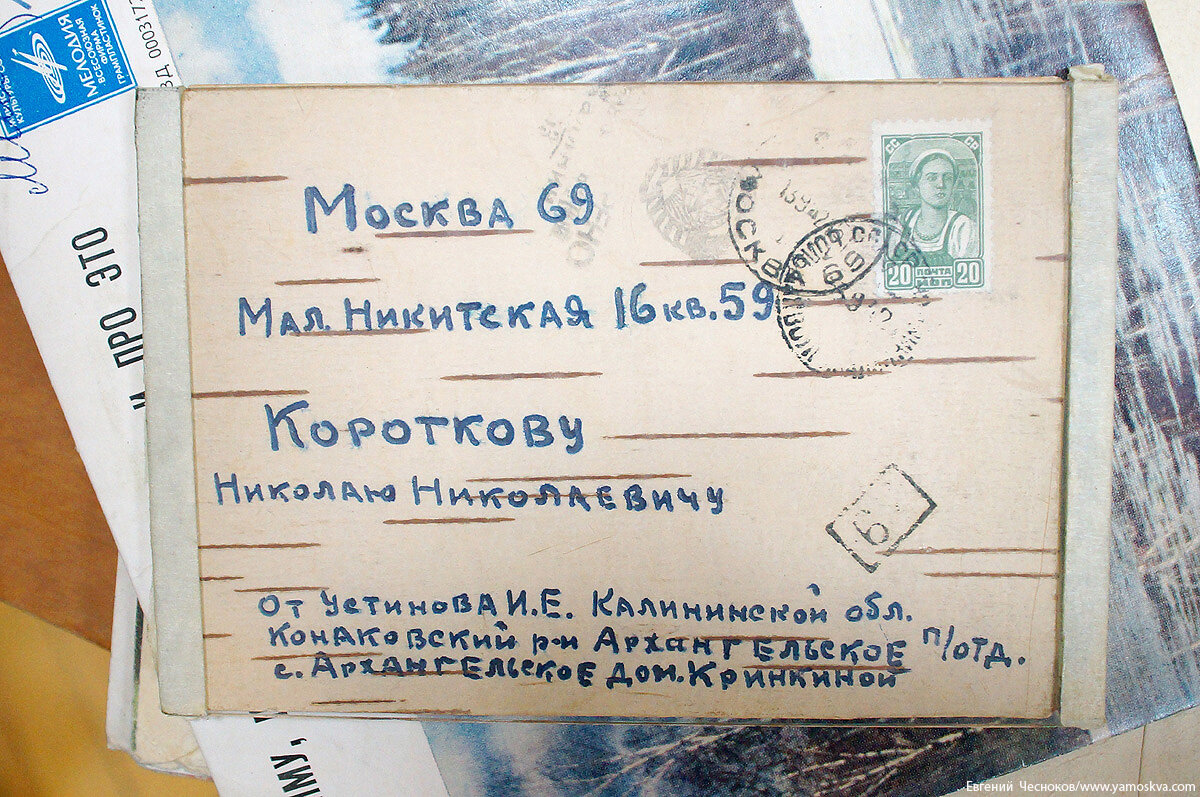 МЕЛОДИЯ
ВСЕСОЮЗНАЯ
ФИРМА
ГРАМПЛАСТИНОК
ПРО ЭТО
Москва 69
Мал. Никитская 16 кв. 59
Короткову
Николаю Николаевичу
От Устинова И.Е. Калининской обл.
Конаковский р-н Архангельское п/отд.
с. Архангельское дом. Кринкиной
СС СР
20 ПОЧТА 20
МОСКВА
Б
ИМУ,
Евгений Чесноков/www.yamoskva.com